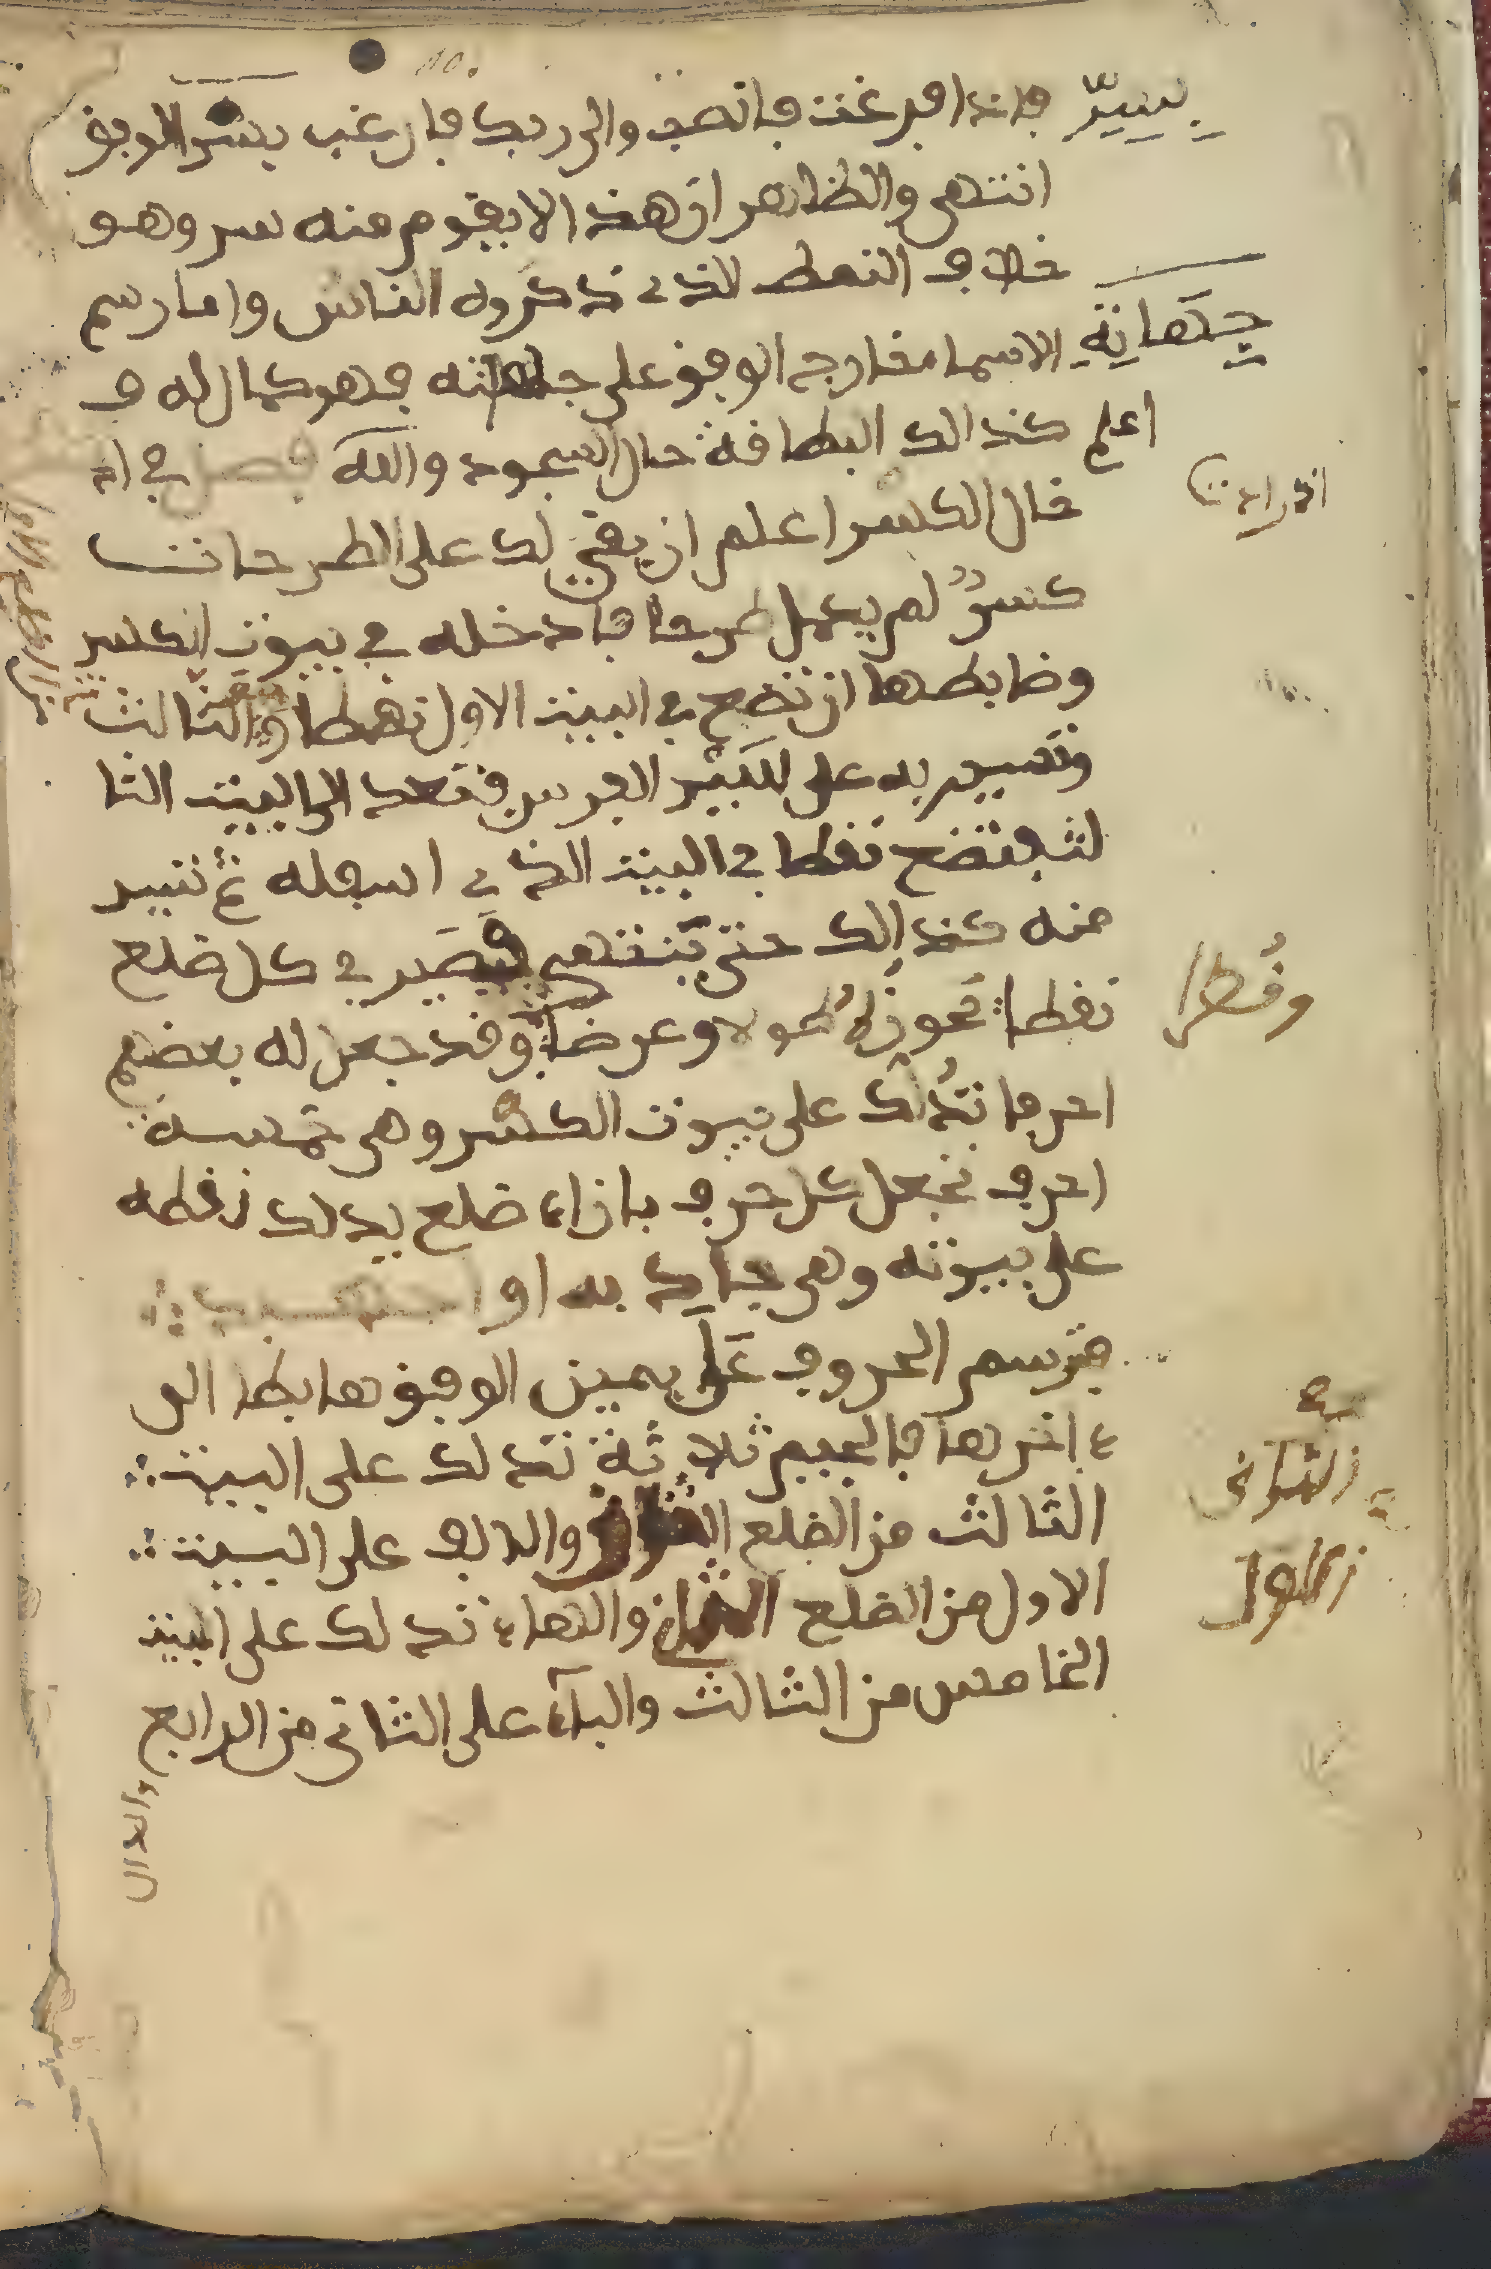 فإذا فرغت فانصب والى ربك فارغب بسر الوفق
يسيرّ
انتهى والظاهر ان هذا لا يقوم منه سر وهو
خلاف النمط الذي ذكروه الناس واما رسم
الاسما خارج الوفق على جهاته فهو كمال له و
جِهَاتِهِ
كذالك البطاقة حال السجود والله
اعلم
فصل في اد
خال الكسر اعلم ان بقي لك على الطرحات
كسرٌ لم يكمل طرحا فادخله في بيوت الكسر
وضابطها ان تضع في البيت الاول نقطا والثالث
وتسير به على السير الفرس فتعد الى البيت الثا
لث فتضع نقطا في البيت الذي اسفله ثم تسير
منه كذالك حتى تنتهي فيصير في كل ضلع
نقطا نحوزه طولا وعرضا وقد جعل له بعضهم
وقُطرا
احرفا تدلك على بيوت الكسر وهي خمسة
احرف تجعل كل حرف بازاء ضلع يدلك نقطه
على بيوته وهي جاه بد او
فترسم الحروف على يمين الوفق هابطا الى
ءاخرها فالجيم ثلاثة تدلك على البيت
الثالث من الضلع والالف على البيت
الاول من الضلع الثاني والهاء تدلك على البيت
الخامس من الثالث والباء على الثاني من الرابع
والدال